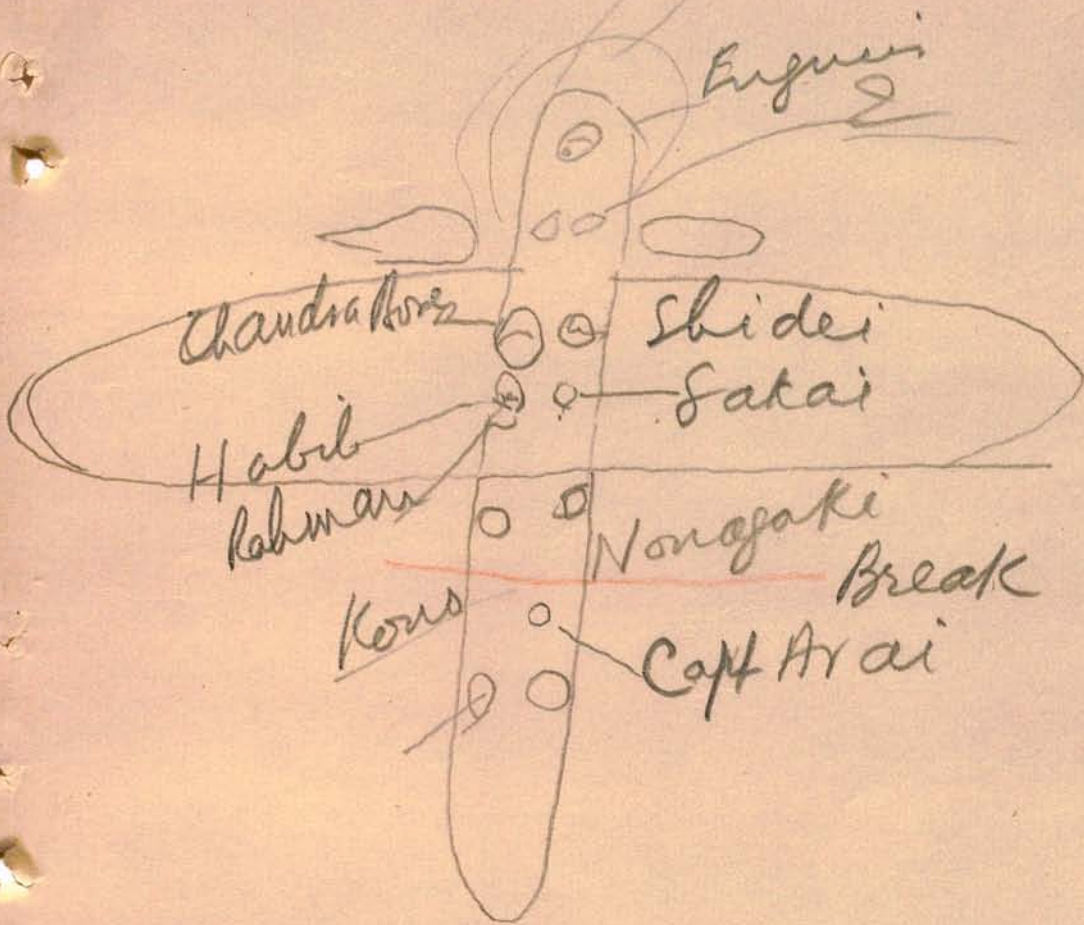 Chandra Bose
Shidei
Sakai
Habib
Rahman
Nonogaki
Break
Kono
Capt Arai